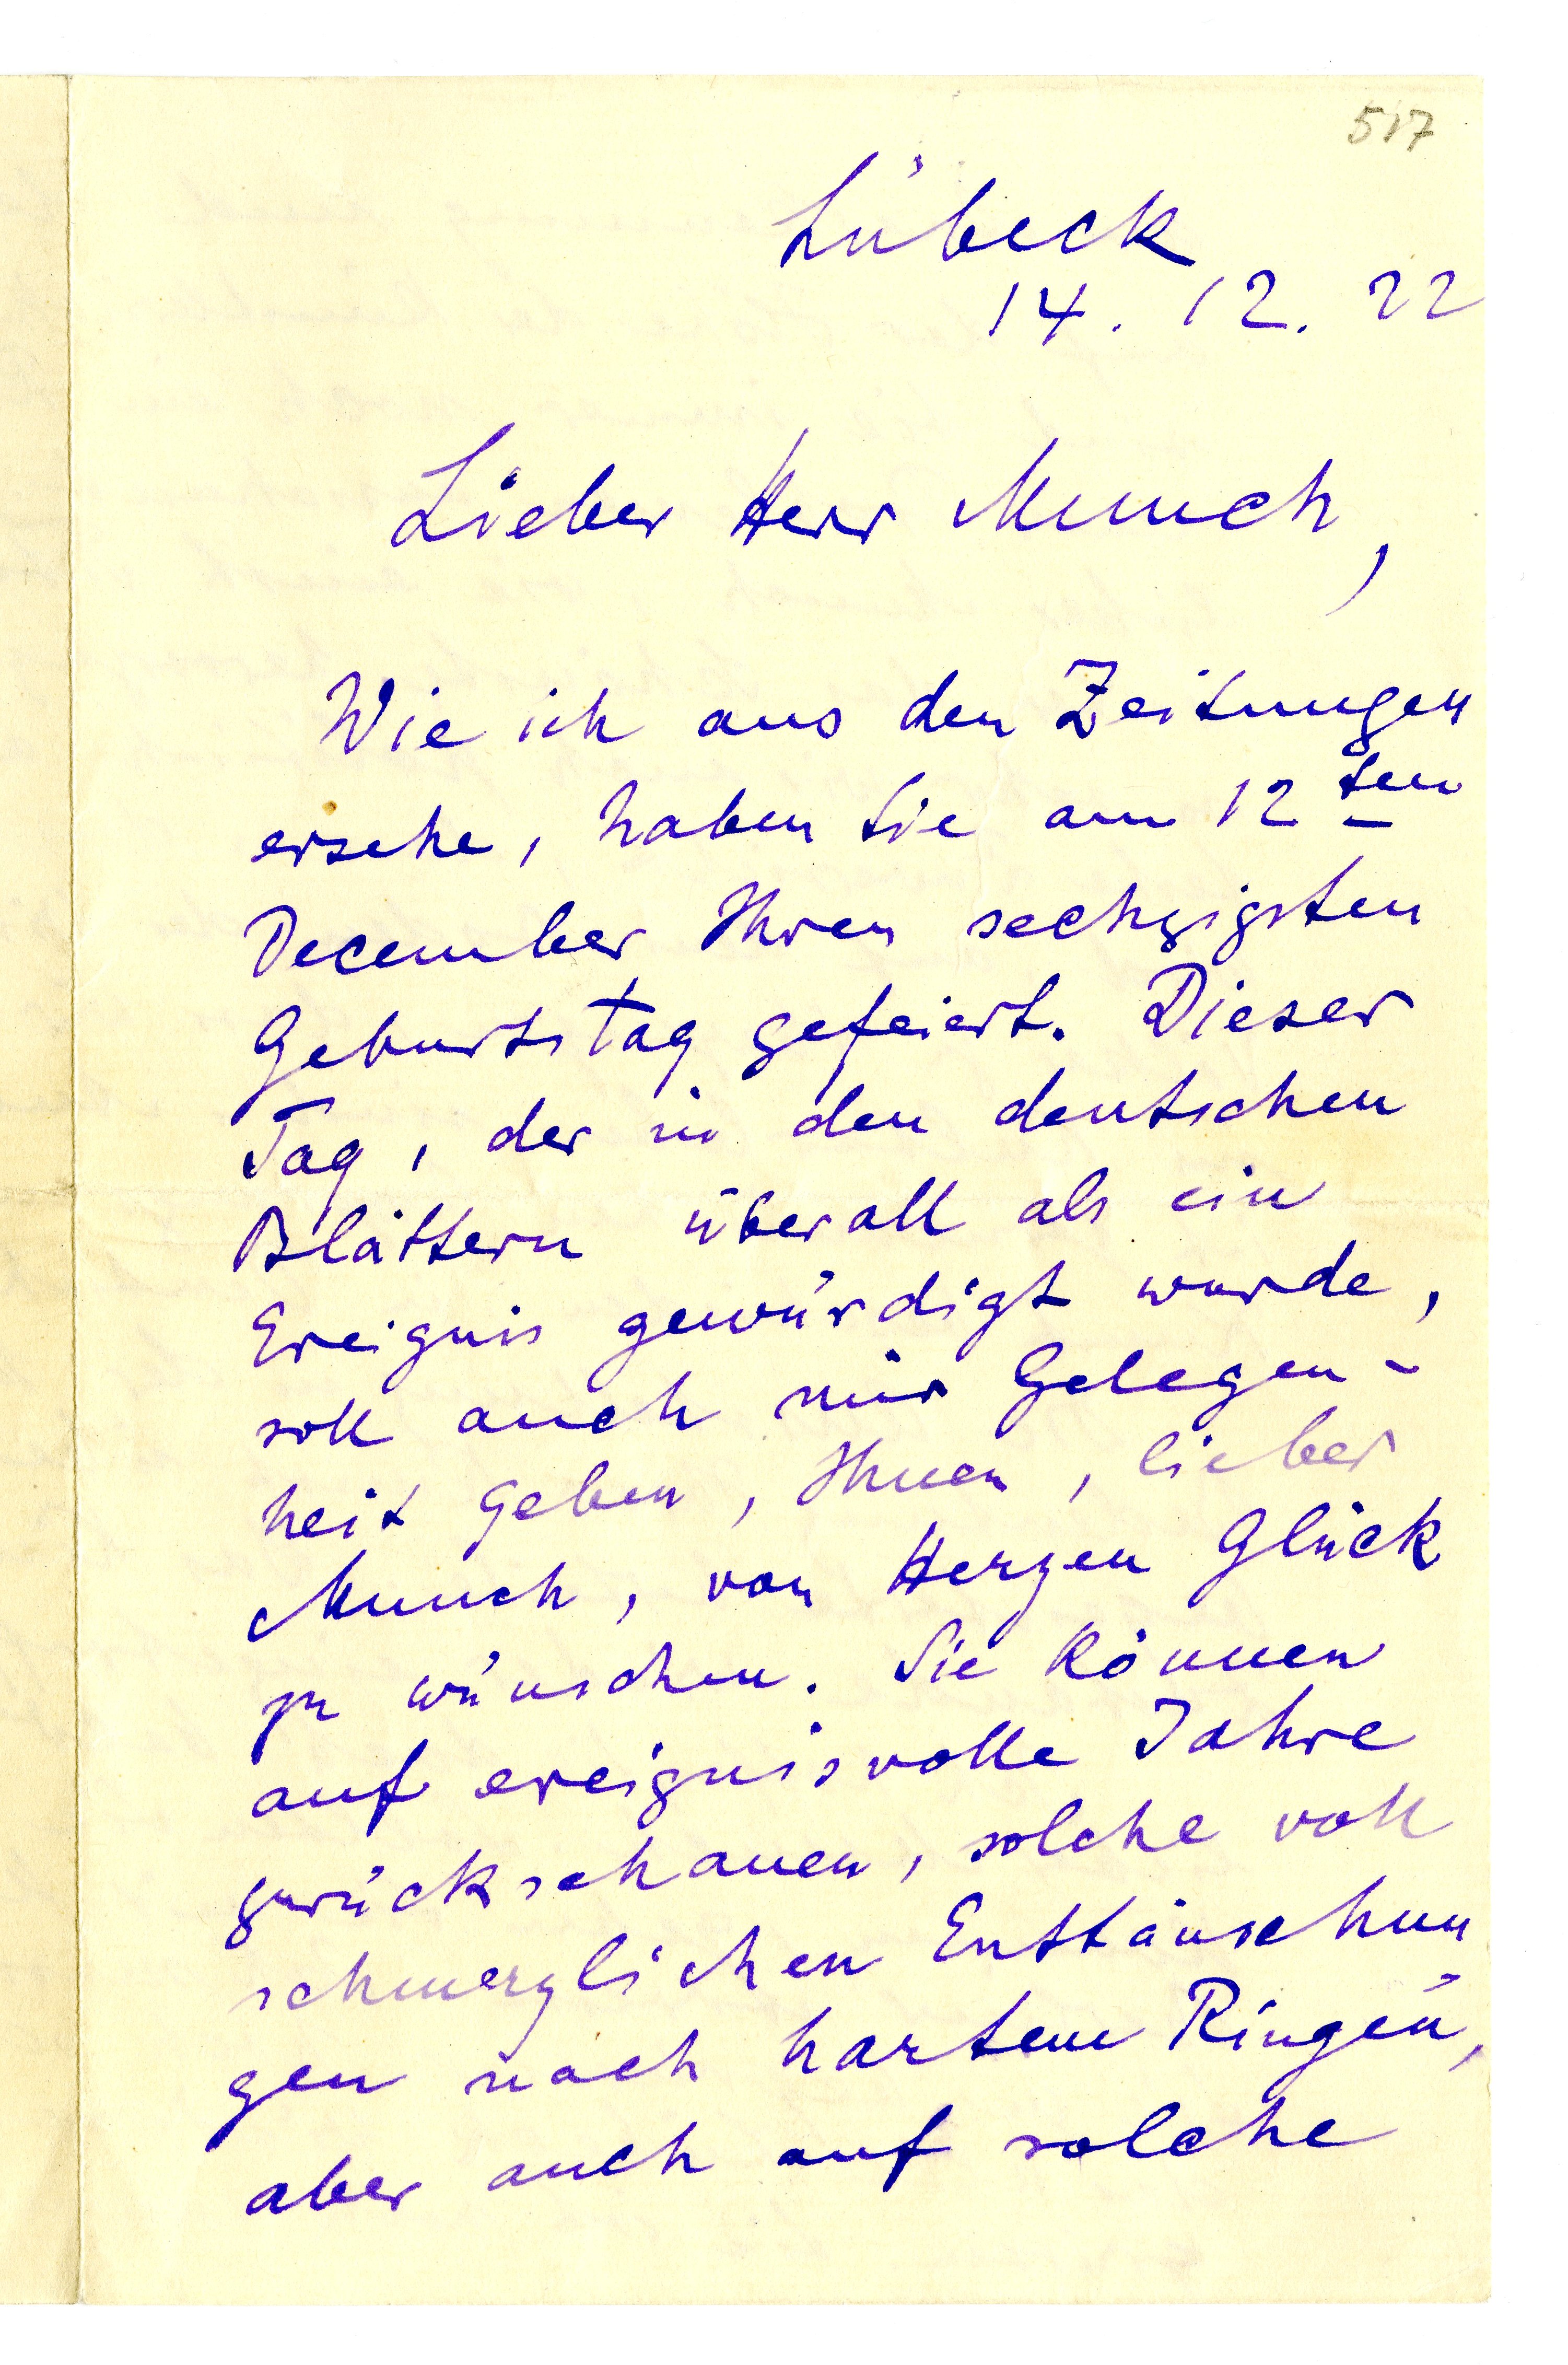 517
Lübeck
14. 12. 22
Lieber Herr Munch,
Wie ich aus den Zeitungen
ersehe, haben Sie am 12ten
December Ihren sechzigsten
Geburtstag gefeiert. Dieser
Tag, der in den deutschen
Blättern überall als ein
Ereignis gewürdigt wurde,
soll auch mir Gelegen-
heit geben, Ihnen, lieber
Munch, von Herzen Glück
zu wünschen. Sie können
auf ereignisvolle Jahre
zurückschauen, solche voll
schmerzlichen Enttäuschun-
gen nach hartem Ringen,
aber auch auf solche